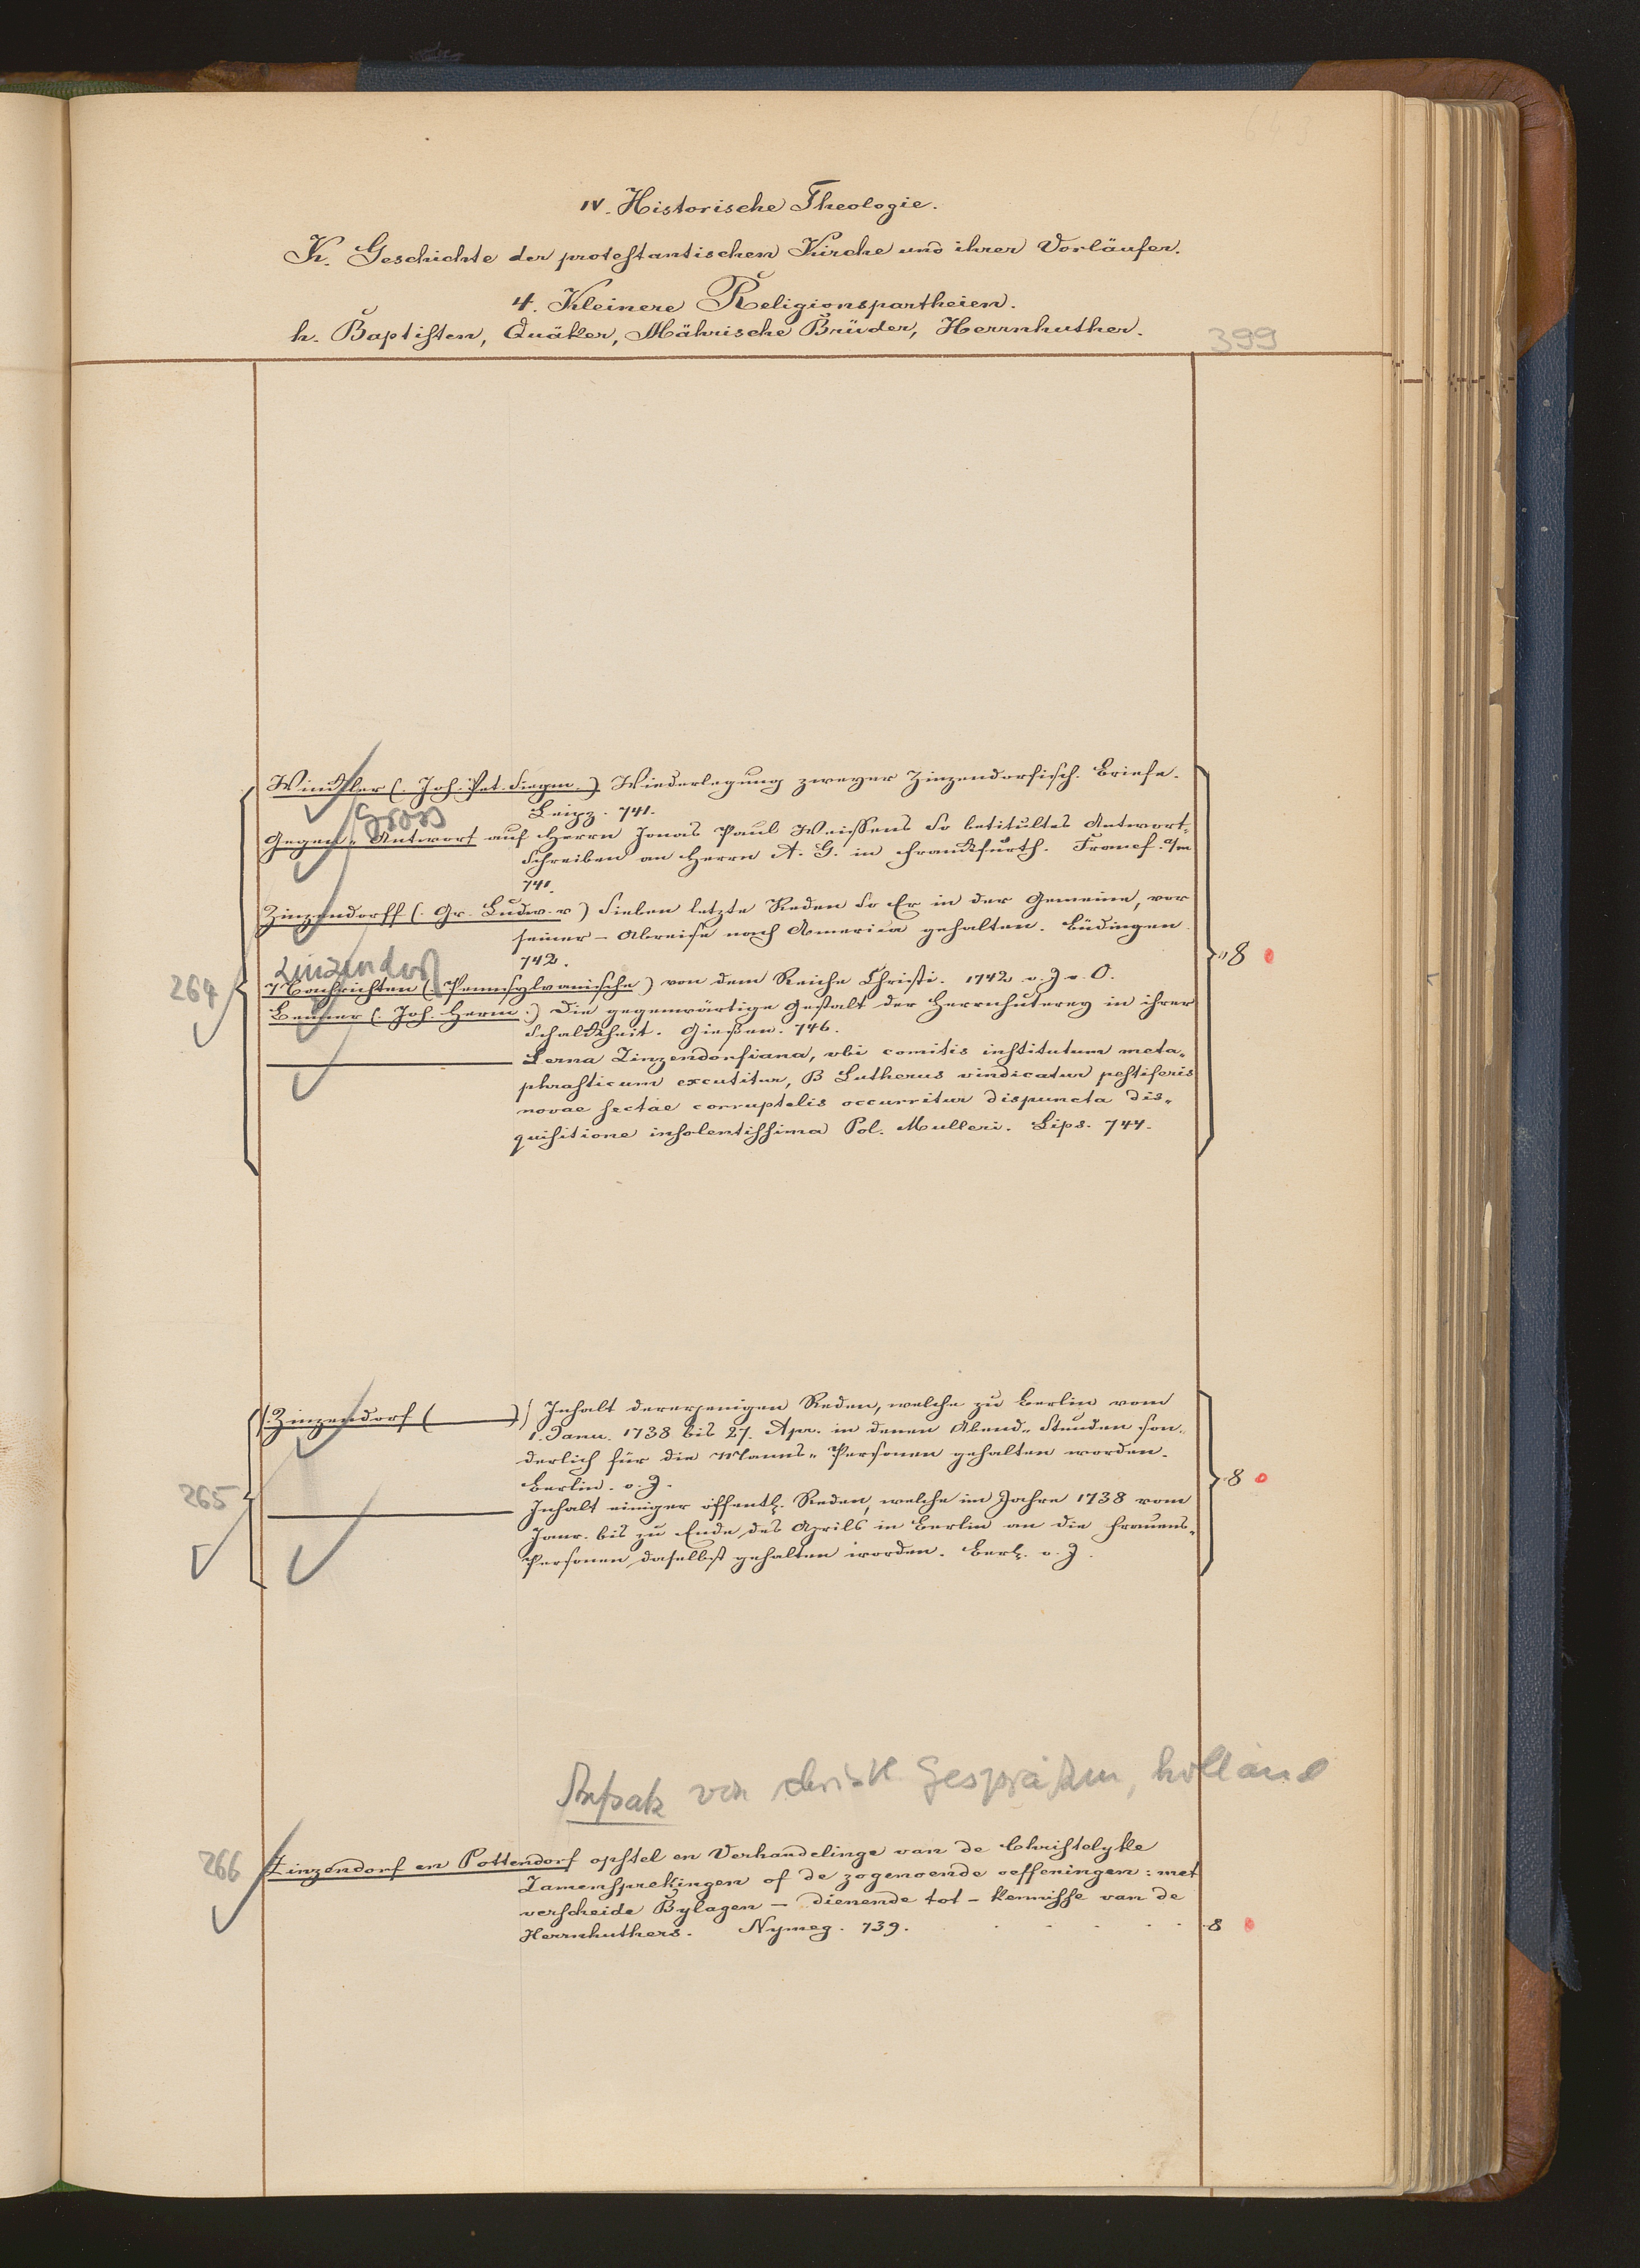 643
IV. Historische Theologie.
K. Geschichte der protestantischen Kirche und ihrer Vorläufer.
4. Kleinere Religionspartheien.
h. Baptisten, Quäker, Mährische Brüder, Herrnhuther.
399
Winckler (. Joh. Pet. Siegm .) Wiederlegung zweyer Zinzendorfisch. Briefe.
Leipz. 741.
Gross
Gegen-Antwort auf Herrn Jonas Paul Weissens so betitultes Antwort-
Schreiben an Herrn A. G. in Franckfurth. Francf. a/m
741.
Zinzendorff (. Gr. Ludw. v ) Sieben letzte Reden so Er in der Gemeine, vor
seiner - Abreise nach America gehalten. Büdingen.
742.
264
8
Zinzendorf
7 Nachrichten (. Pennsylvanische ) von dem Reiche Christi. 1742 o. J u. O.
Benner (. Joh. Herm .) Die gegenwärtige Gestalt der Herrnhuterey in ihrer
Schalckheit. Giessen. 746.
Lerna Zinzendorfiana, ubi comitis institutum meta-
phrasticum excutitur, B Lutherus vindicatur pestiferis
novae sectae corruptelis occurritur dispuncta dis-
quisitione insolentissima Pol. Mulleri. Lips. 744.
(. Zinzendorf ( ) ) Inhalt dererjenigen Reden, welche zu Berlin vom
1. Janu. 1738 bis 27. Apr. in denen Abend-Stunden son-
derlich für die Manns-Personen gehalten worden.
Berlin. o. J.
265
8
Inhalt einiger öffentl. Reden, welche im Jahre 1738 vom
Janr. bis zu Ende des Aprils in Berlin an die Frauens-
Personen daselbst gehalten worden. Berl. o. J.
von christl. Gesprächen, holländ
266
Zinzendorf en Pottendorf opstel en Verhandelinge van de Christelyke
Zamensprekingen of de zogenoende oeffeningen: met
verscheide Bylagen - dienende tot - kennisse van de
Herrnhuthers. Nymeg. 739. 8